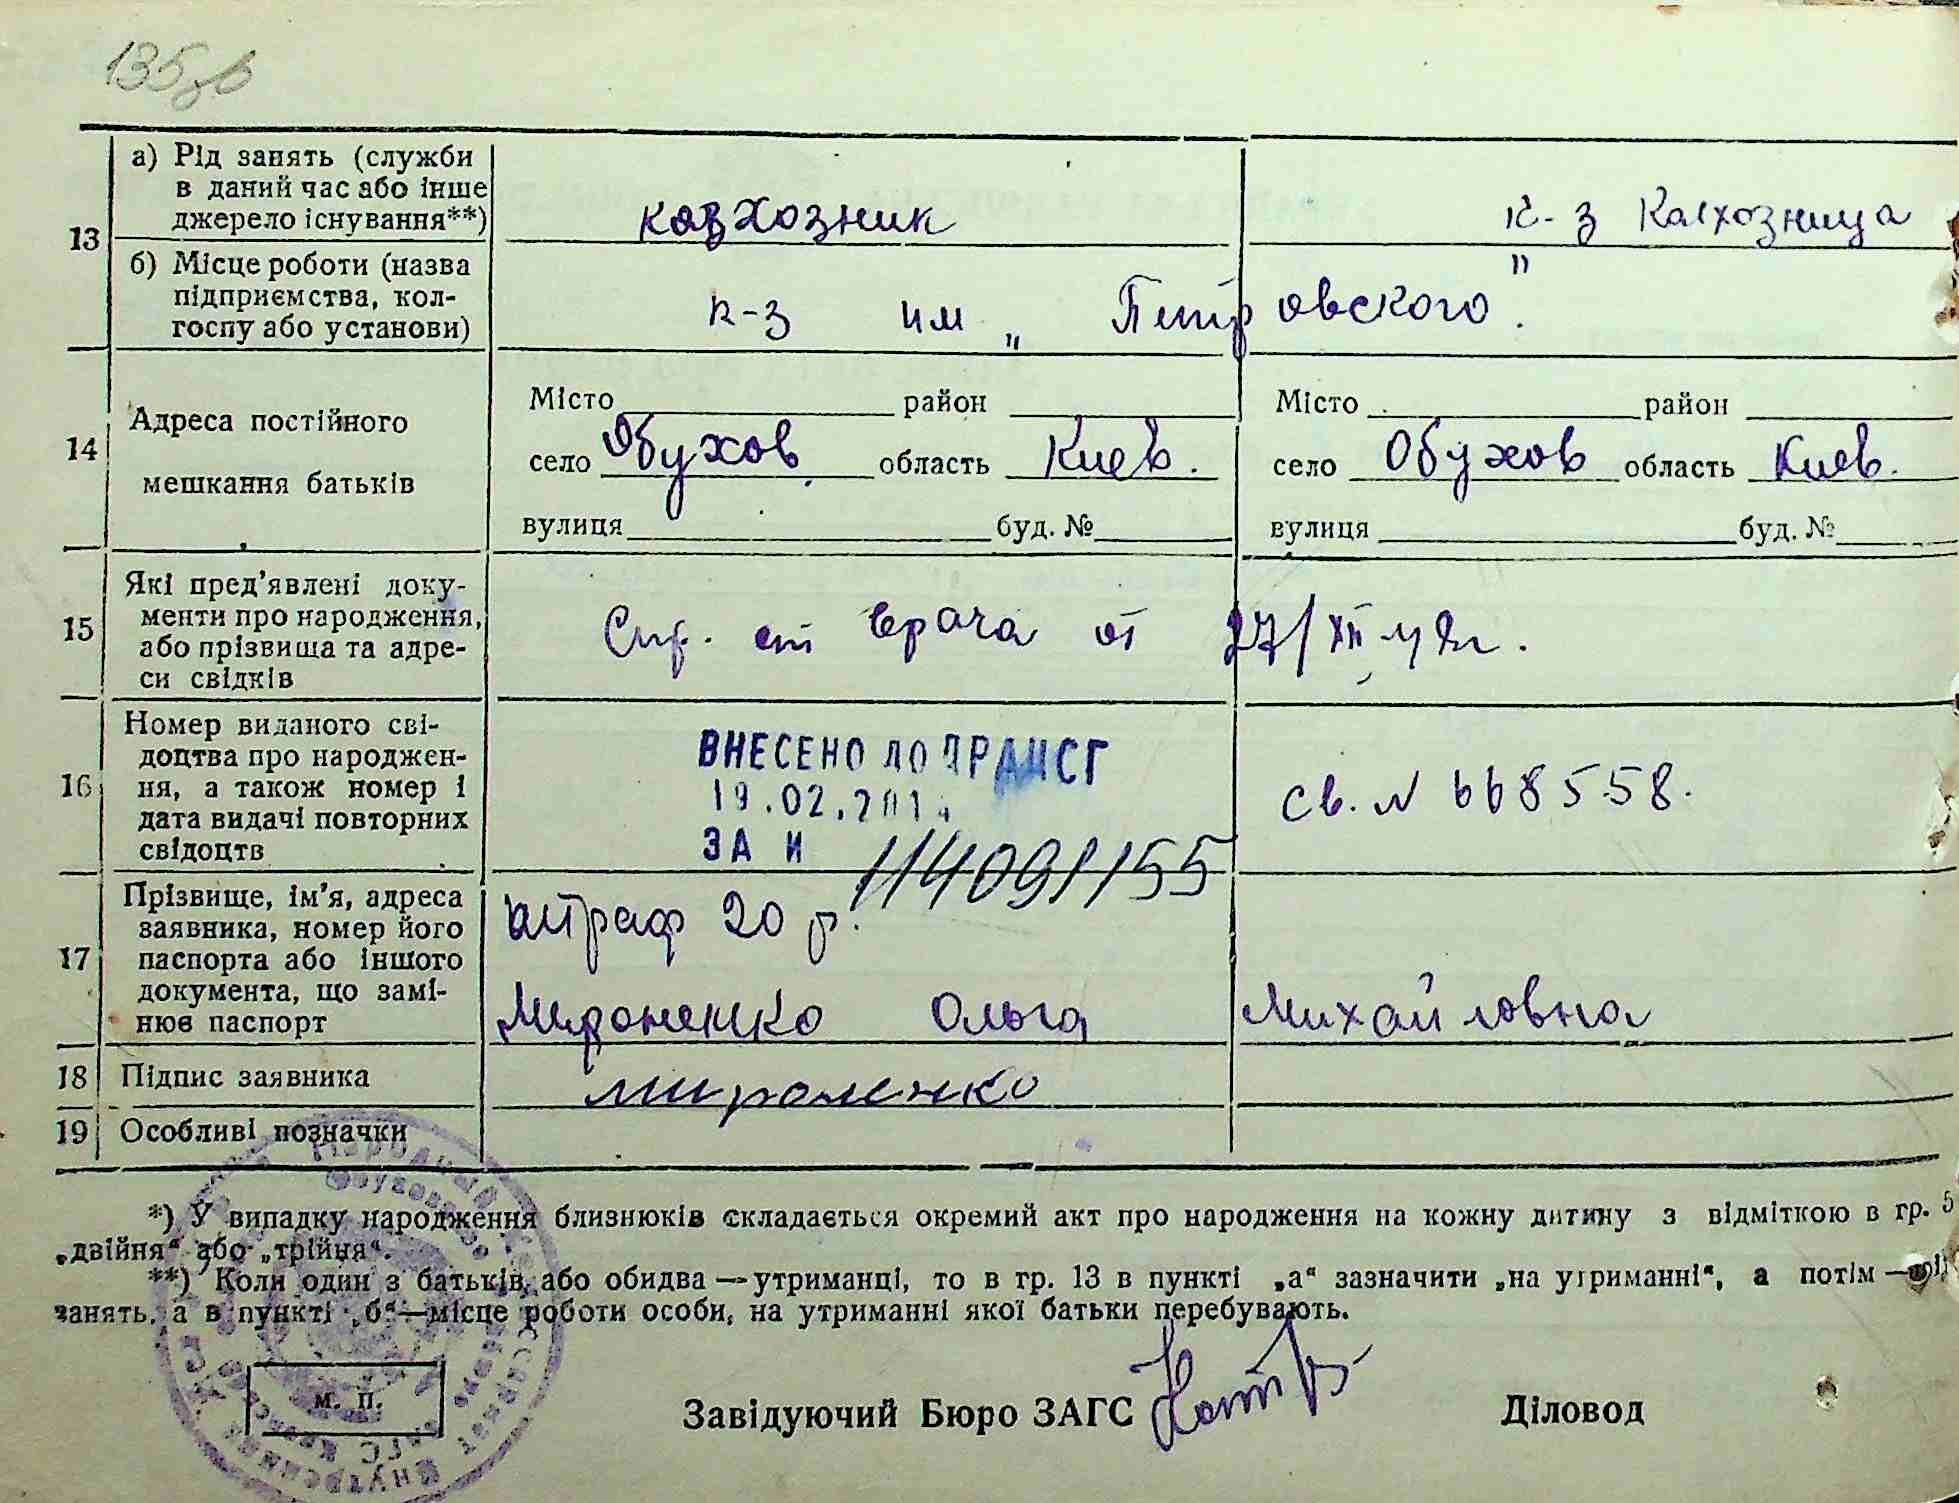 135 зв
13
а) Рід занять (служби
в даний час або інше
джерело існування**)
колхозник
к-з Колхозница
б) Місце роботи (назва
підприємства, кол-
госпу або установи)
к-з им „ Петровского".
14
Адреса постійного
мешкання батьків
Місто район
село Обухов область Киев.
вулиця буд. №
Місто район
село Обухов область Киев.
вулиця буд. №
15
Які пред'явлені доку-
менти про народження,
або прізвища та адре-
си свідків
Спр. от врача от 27/XII 42г.
16
Номер виданого сві-
доцтва про народжен-
ня, а також номер і
дата видачі повторних
свідоцтв
ВНЕСЕНО ДО ДРАЦСГ
19.02.201
ЗА И 114091155
св. N 668558.
17
Прізвище, ім'я, адреса
заявника, номер його
паспорта або іншого
документа, що замі-
нює паспорт
штраф 20 р.
Мироненко Ольга Михайловна
18
Підпис заявника
Мироненко
19
Особливі позначки
*) У випадку народження близнюків складається окремий акт про народження на кожну дитину з відміткою в гр. 5
„двійня" або „трійня".
**) Коли один з батьків, або обидва — утриманці, то в гр. 13 в пункті „а" зазначити „на утриманні", а потім —
занять, а в пункті „б"—місце роботи особи, на утриманні якої батьки перебувають.
м. п.
Завідуючий Бюро ЗАГС
Діловод